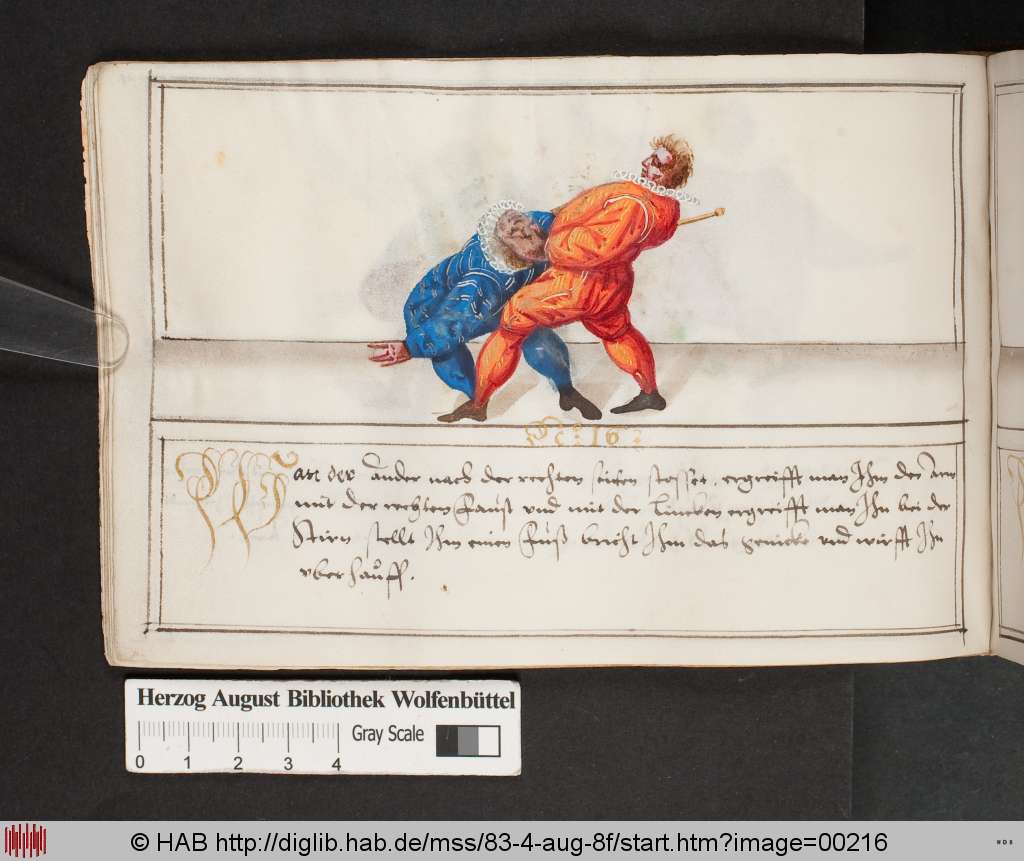 No: 16 2
Wan der Ander nach der rechten seiten stosset, ergreifft man Ihm den Arm
mitt der rechten Faust vnd mit der Lincken ergreifft man Ihn bei der
Stirn stellt Ihm einen Fuß bricht Ihm das genicke vnd wirfft Ihn
vber hauff.
Herzog August Bibliothek Wolfenbüttel
Gray Scale
0 1 2 3 4
© HAB http://diglib.hab.de/mss/83-4-aug-8f/start.htm?image=00216